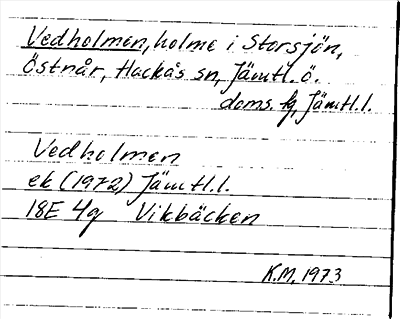 Vedholmen, holme i Storsjön,
Östnår, Hackås sn, Jämtl. ö.
doms. tg, Jämtl. l.
Vedholmen
ek (1972) Jämtl. l.
18E 4g Vikbäcken
K.M. 1973